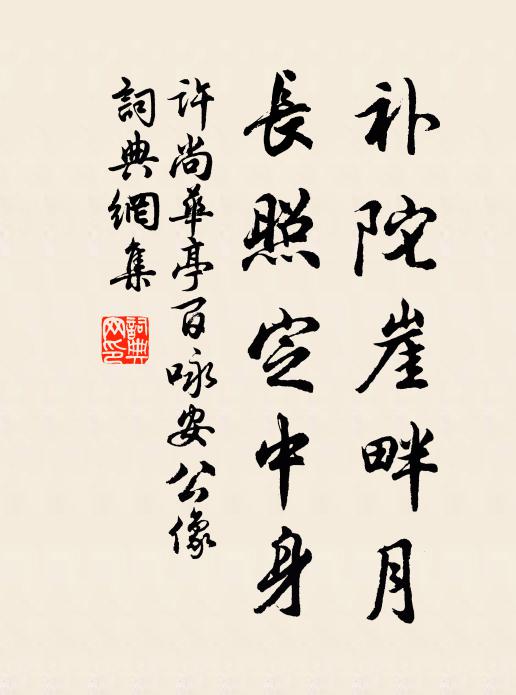 补陀崖畔月
長照定中身
許尚華亭百咏安公像
詞典網集
詞典网印